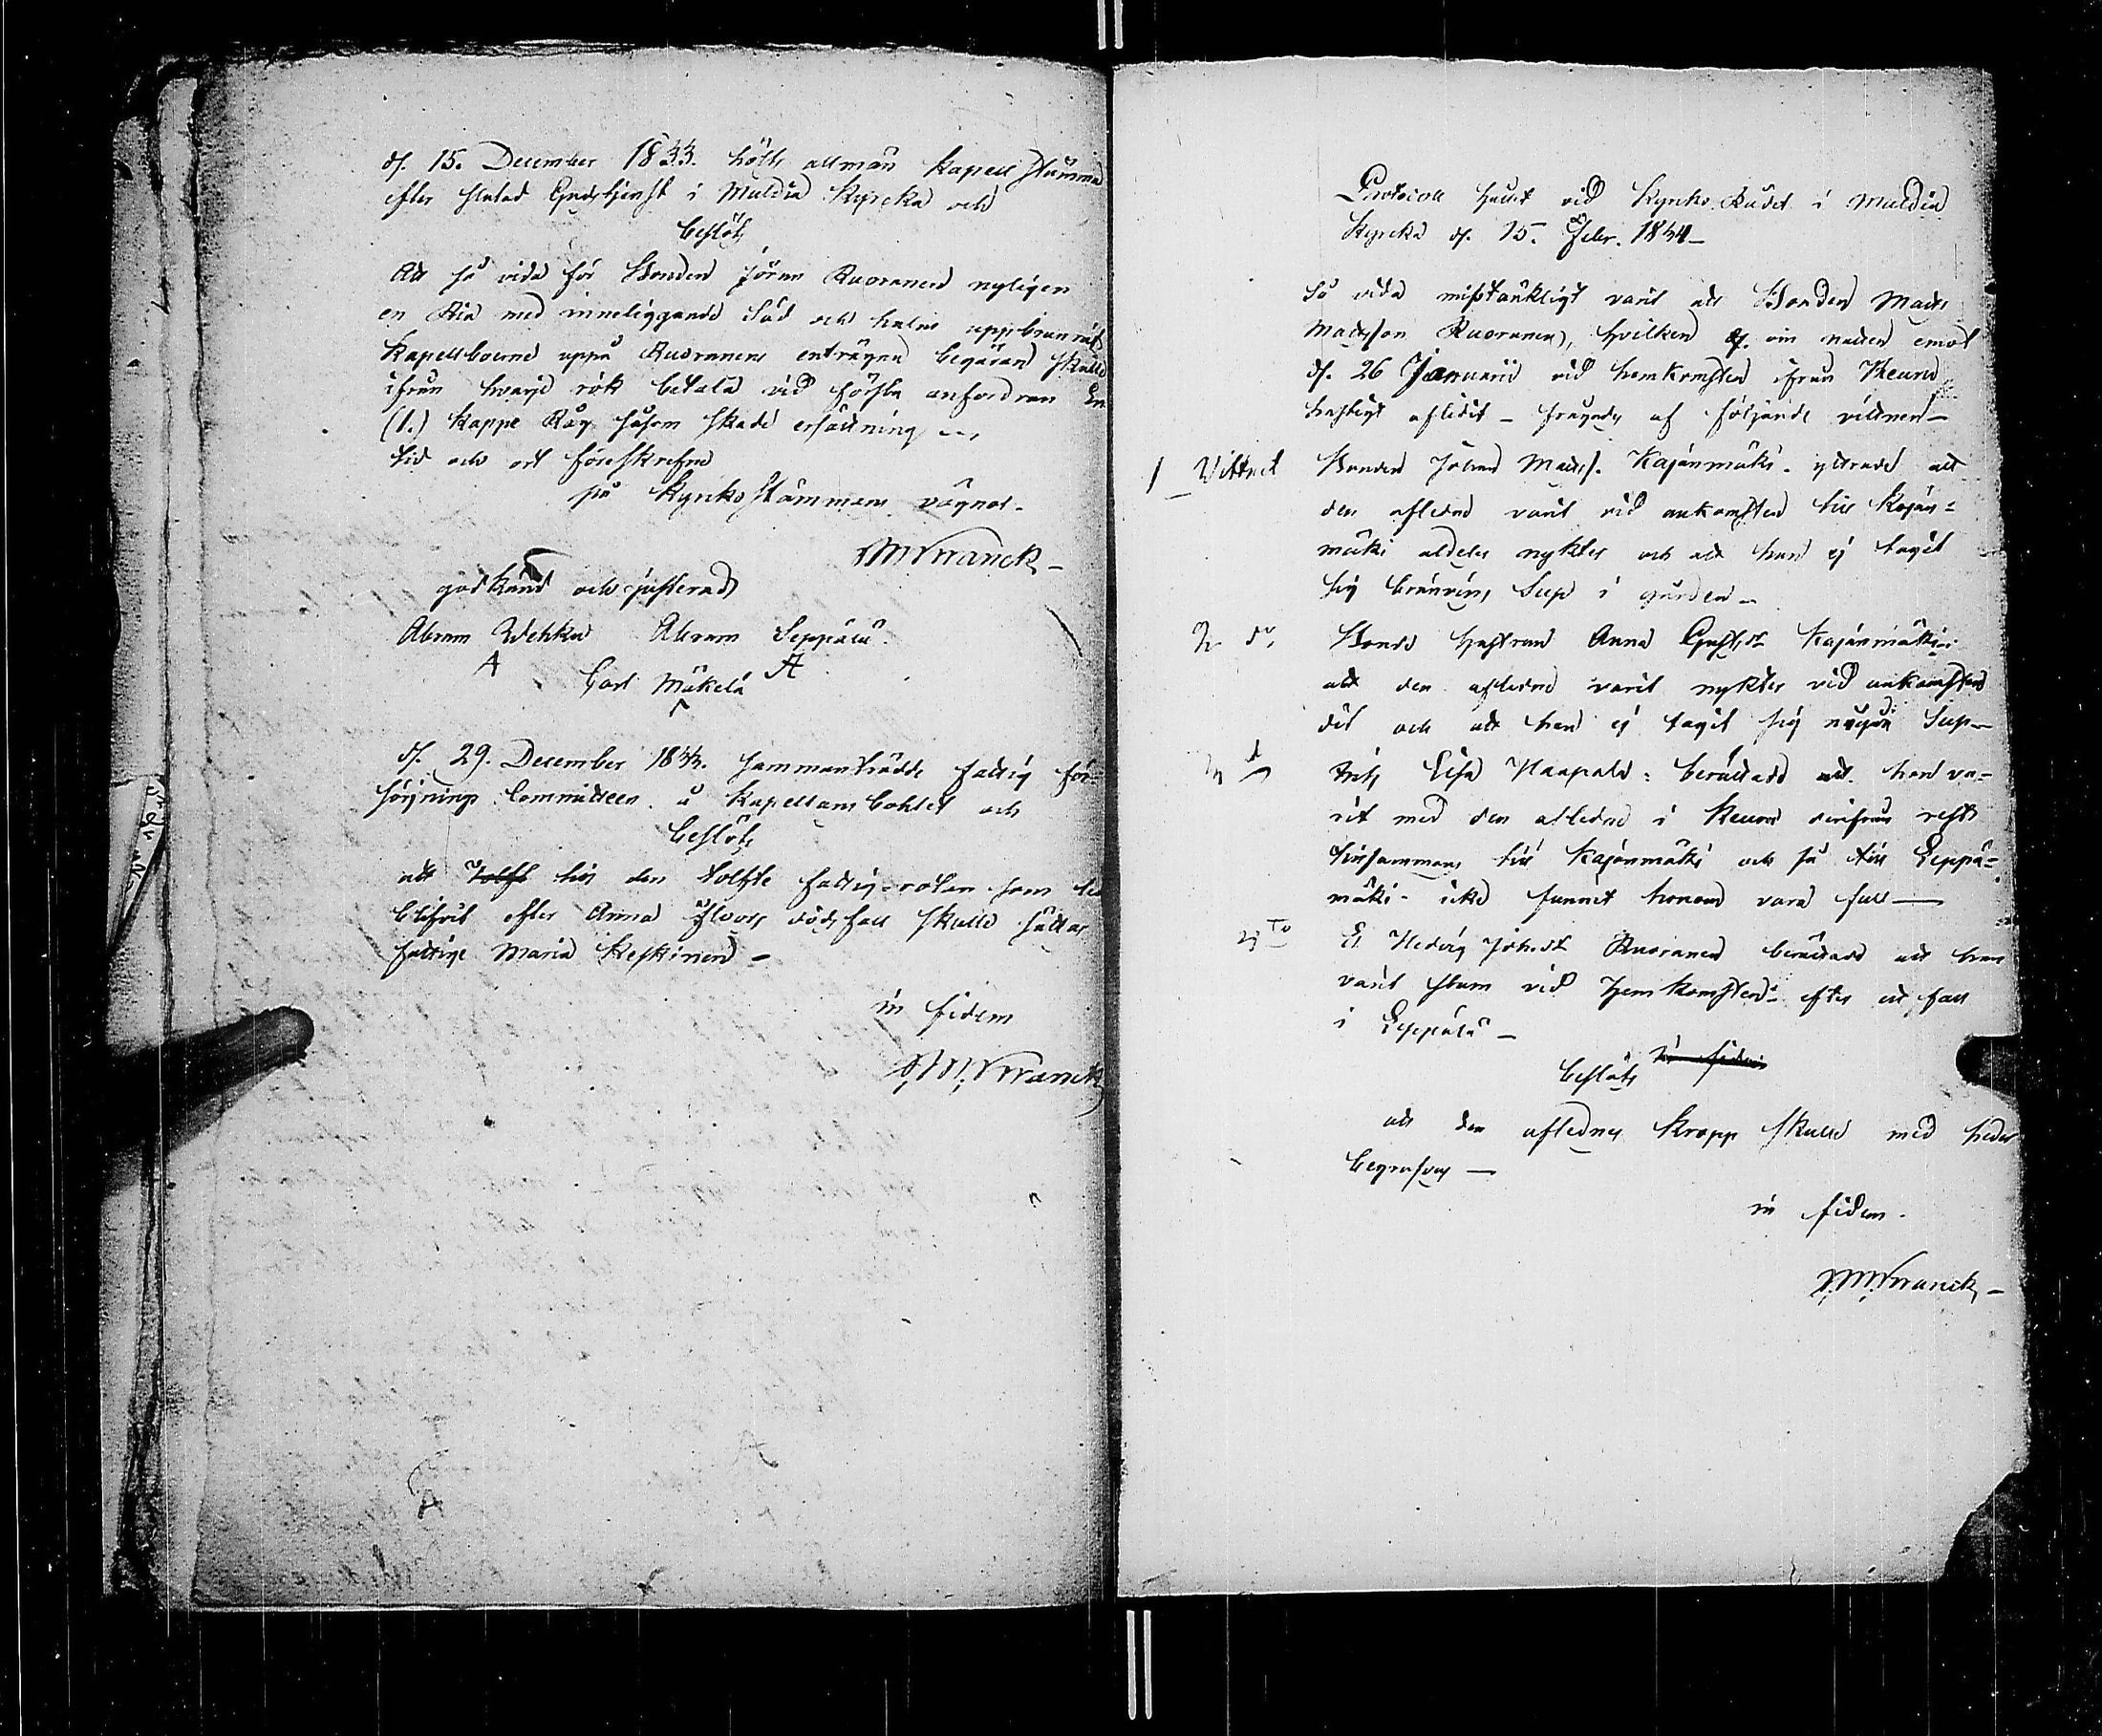 d. 15. December 1833. hölts allmän Kapell Stämma
efter slutad Gudstjenst i Muldia Kyrcka och
beslöts
Att så vida för Bonden Jöran Ruoranen nyligen
en Ria med inneliggande Säd och halm uppbrunnit
Kapellboerne uppå Ruoranens enträgna begäran skulle
ifrån hvarje rök betala vid första anfordran En
(1.) Kappe Råg såsom skade ersättning
tid och ort föreskrefne
på Kyrko Stämmans vägnar.
Wranck
godkänd och justerad
Abram Abram Seppälä
A A
Carl Mäkelä
d. 29. December 1833. sammanträdde fattig för-
sörjnings Committeen å Kapellans bohlet och
beslöts
att Tolft till den tolfte fattig-rotan som le
blifvit efter Anna dödsfall skulle sättas
fattige Maria Keskinen
in fidem
Wranck
A
A
Protocoll hållit vid Kyrko Rådet i Muldia
Kyrcka d. 15. Febr. 1834
Så vida misstänkligt varit att Bonden Matts
Mattsson Ruoranen, hvilken d. om natten emot
d. 26 Januarii vid hemkomsten ifrån Keuru
hastigt aflidit - frågades af följande vittnen
1 Vittnet Bonden Johan Matts. Kajänmäki yttrade att
den aflidne varit vid ankomsten till Kajän=
mäki aldeles nykter och att han ej tagit
sig bränvins Sup i gården
2 d. Bonde hustrun Anna Gustafsdr Kajänmäki:
att den aflidne varit nykter vid ankomsten
dit och att han ej tagit sig någon Sup
3 d Elsa Haapala: berättade att han va-
rit med den aflidne i Keuru derifrån rest
tillsammans till Kajänmäki och så till Leppä=
mäki - icke funnit honom vara full
4to E. Hedvig Johsdr Ruoranen berättade att han
varit stum vid Hemkomsten efter ett fall
i Leppälä
in fidem
beslöts
att den aflidnes kropp skulle med heder
begrafvas
in fidem.
Wranck